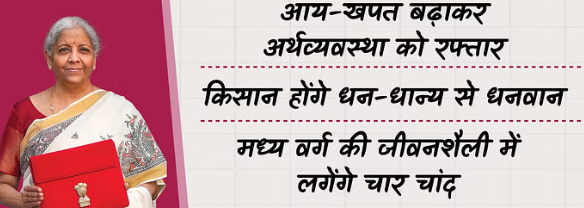 आय-खपत बढ़ाकर
अर्थव्यवस्था को रफ्तार
किसान होंगे धन-धान्य से धनवान
मध्य वर्ग की जीवनशैली में
लगेंगे चार चांद